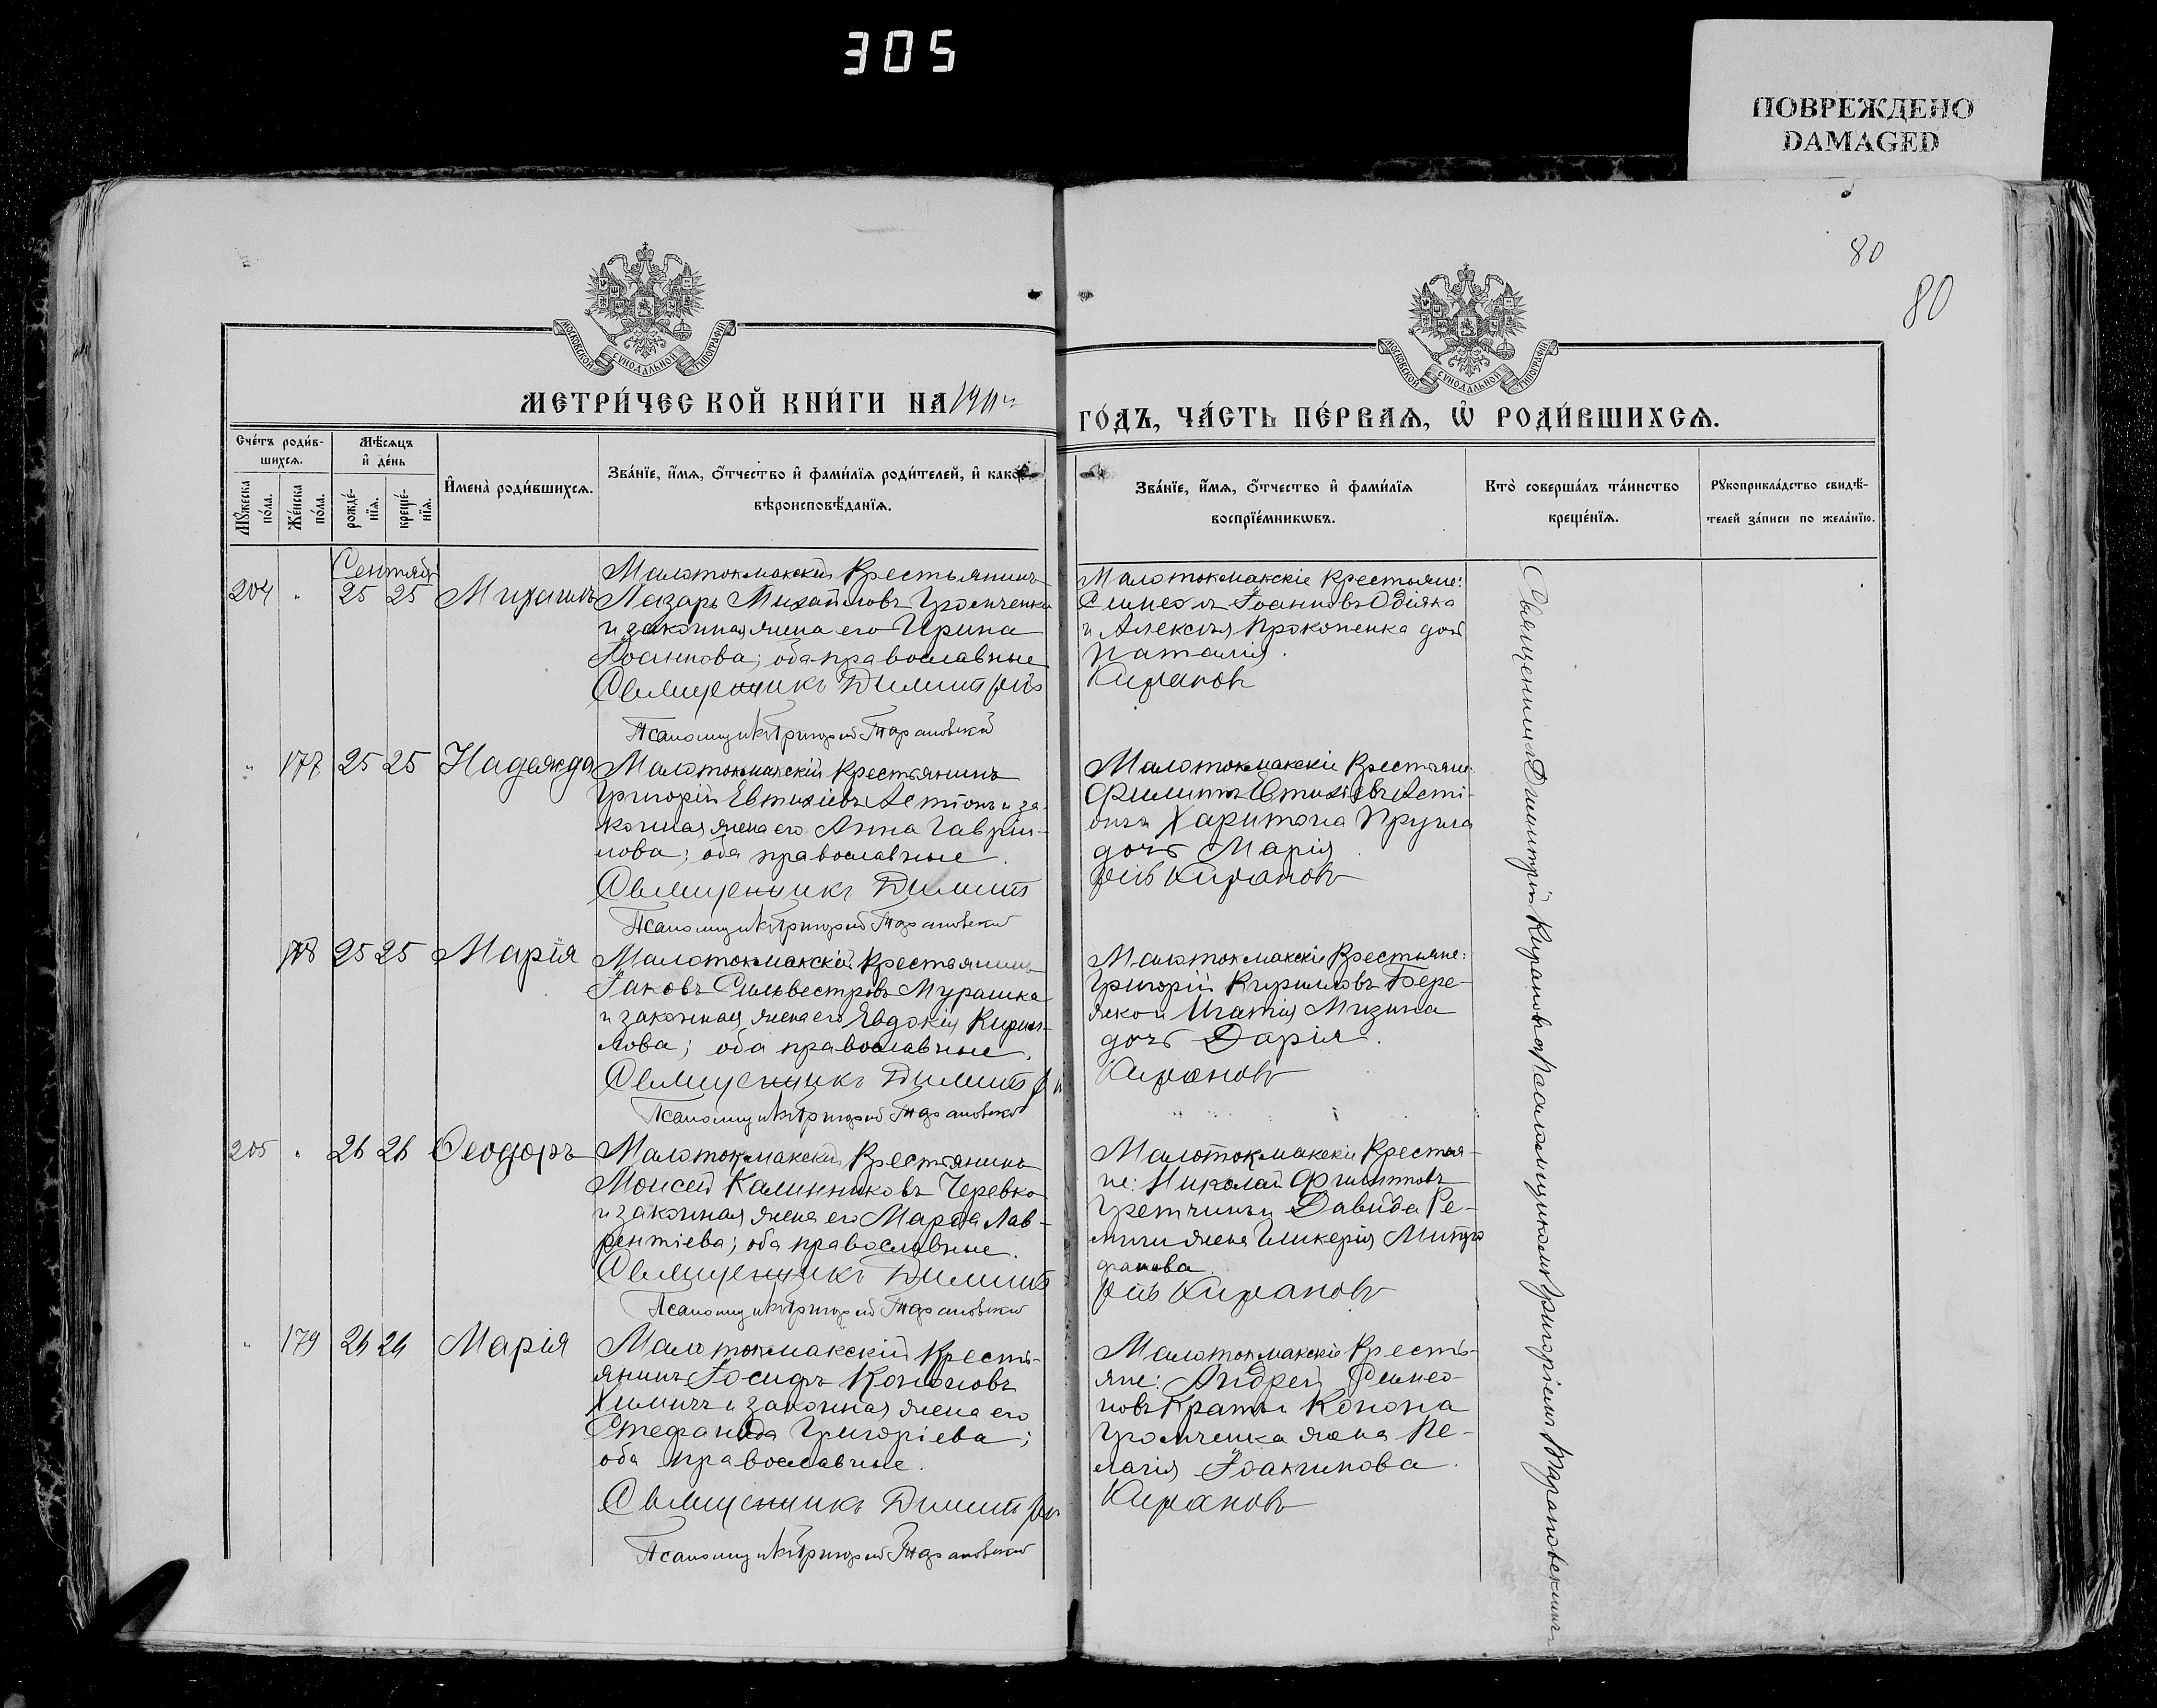 305
ПОВРЕЖДЕНО
DAMAGED
80
80
МОСКОВСКОЙ СѴНОДАЛЬНОЙ ТИПОГРАФІИ
МОСКОВСКОЙ СѴНОДАЛЬНОЙ ТИПОГРАФІИ
МЕТРИ́ЧЕСКОЙ КНИ́ГИ НА 1911
ГО́ДЪ, ЧА́СТЬ ПЕ́РВАѦ, Ѡ҆ РОДИ́ВШИХСѦ.
Сче́тъ роди́в-
шихсѧ.
Мѣ́сѧцъ
и҆ де́нь
Мꙋ́жеска
по́ла.
Же́нска
по́ла.
рожде́-
нїѧ.
креще́-
нїѧ.
И҆мена̀ роди́вшихсѧ.
Зва́нїе, и҆́мѧ, ѻ҆́тчество и҆ фами́лїѧ роди́телей, и҆ како́
вѣроисповѣ́данїѧ.
Зва́нїе, и҆́мѧ, ѻ҆́тчество и҆ фами́лїѧ
воспрїе́мникѡвъ.
Кто̀ соверша́лъ та́инство
креще́нїѧ.
Рꙋкоприкла́дство свидѣ́-
телей за́писи по жела́нїю.
Сентябр
204 " 25 25 Михаилъ
Малотокмакскій Крестьянинъ
Лазарь Михайловъ Громченко
и законная жена его Ирина
Іоаннова; оба православные
Священникъ Димитрій
Псаломщикъ Григорій Тарановскій
Малотокмакскіе Крестьяне:
Симеонъ Іоанновъ Одіяка
и Алексѣя Прокопенка доч
Наталія.
Кирановъ
" 177 25 25 Надежда
Малотокмакскій Крестьянинъ
Григорій Евтихіевъ Астіонъ и за-
конная жена его Анна Гаврiи-
лова; оба православные.
Священникъ Димит
Псаломщикъ Григорій Тарановскій
Малотокмакскіе Крестьяне
Филиппъ Евтихіевъ Асті-
онъ и Харитона
дочь Марія.
рій Кирановъ
178 25 25 Марія
Малотокмакскій Крестьянинъ
Іаковъ Сильвестровъ Мурашка
и законная жена его Евдокія Кирил-
лова; оба православные.
Священникъ Димитрі
Псаломщикъ Григорій Тарановскій
Малотокмакскіе Крестьяне:
Григорій Кирилловъ Бере-
жко и Игнатія Мизина
дочь Дарія.
Кирановъ
205 " 26 26 Ѳеодоръ
Малотокмакскій Крестьянинъ
Моисей Калинниковъ Черевко
и законная жена его Марѳа Лав-
рентіева; оба православные.
Священникъ Димит
Псаломщикъ Григорій Тарановскій
Малотокмакскіе Крестья-
не: Николай Филипповъ
Гретчинъ и Давида Ре-
жена Гликерія Митро
фанова.
рій Кирановъ
" 179 26 26 Марія
Малотокмакскій Кресть-
янинъ Іосифъ Кононовъ
Химичъ и законная жена его
Стефанида Григоріева;
оба православные.
Священникъ Димитрі
Псаломщикъ Григорій Тарановскій
Малотокмакскіе Кресть-
яне: Андрей Симео-
новъ Кратъ и Конона
Громченка жена Пе-
лагія Іоакимова.
Кирановъ
Священникъ Димитрій Кирановъ съ псаломщикомъ Григоріемъ Тарановскимъ